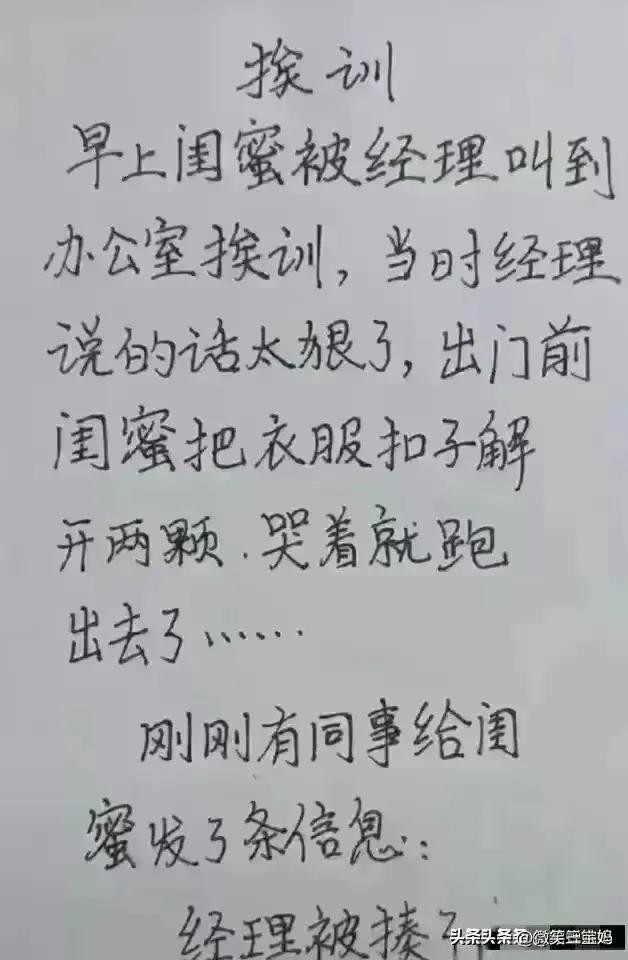 挨训
早上闺蜜被经理叫到
办公室挨训,当时经理
说的话太狠了,出门前
闺蜜把衣服扣子解
开两颗.哭着就跑
出去了……
刚刚有同事给闺
蜜发了条信息:
经理被揍了
头条@微笑三宝妈